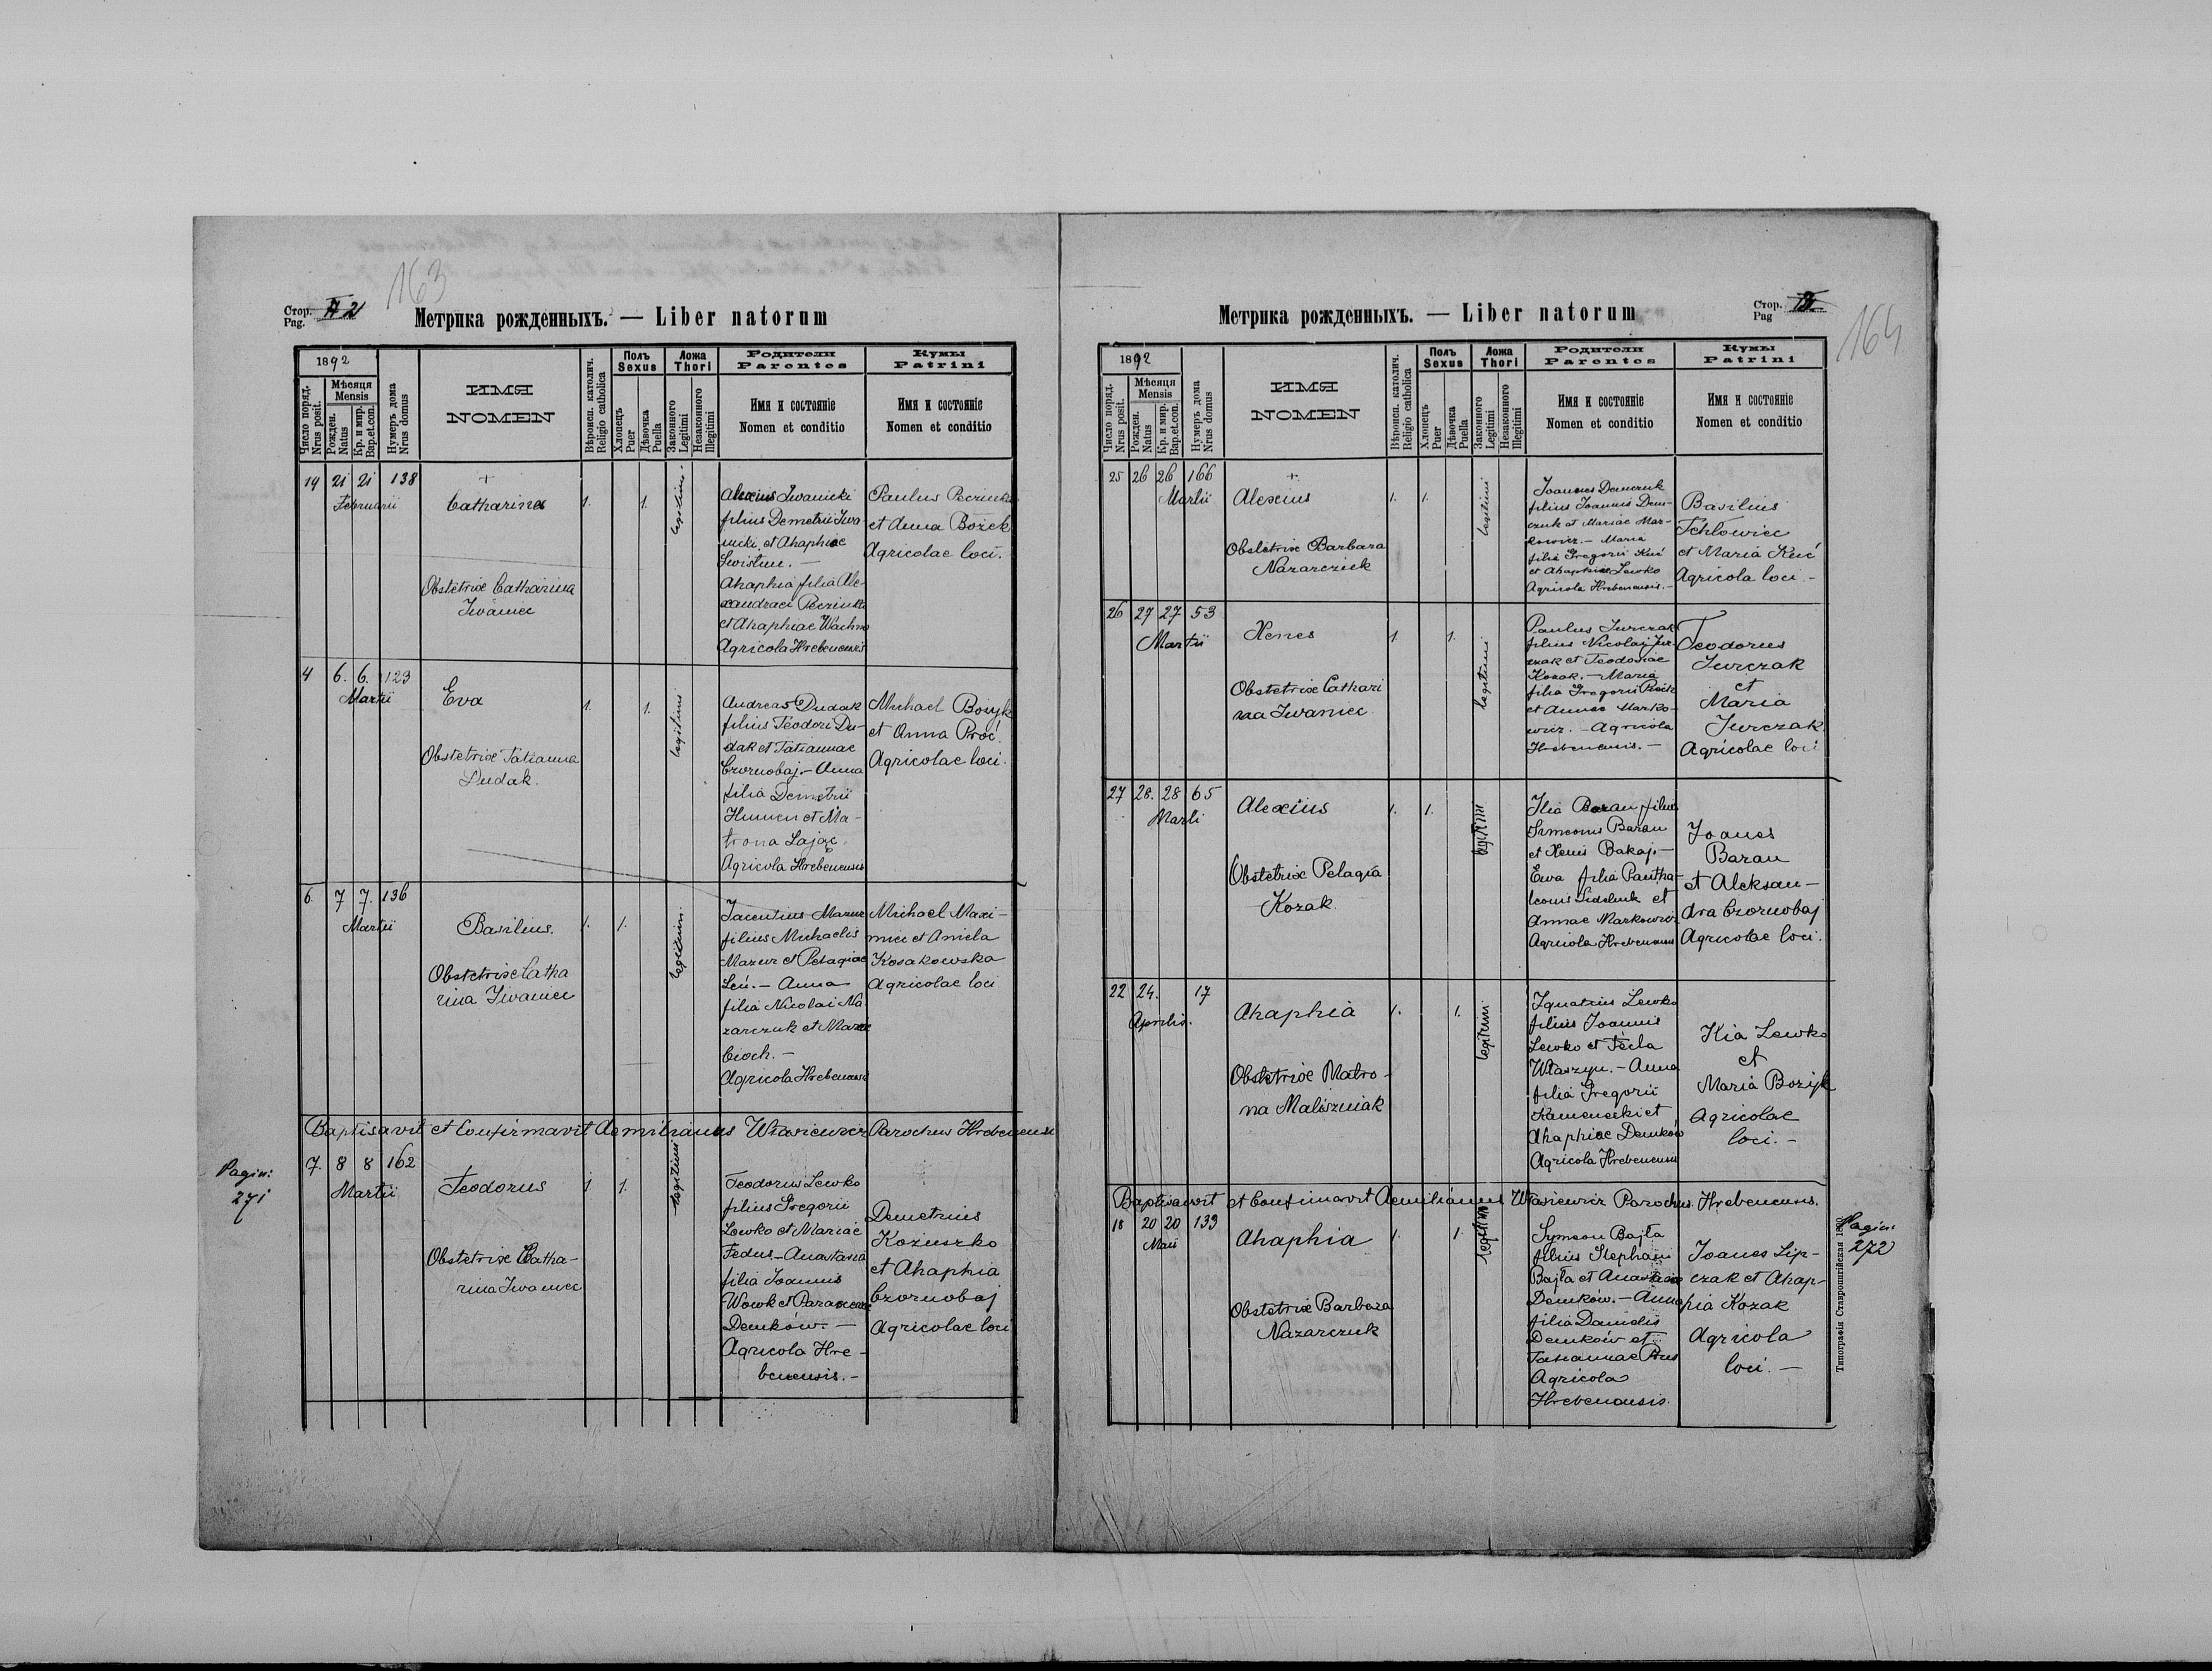 163
Стор.
Pag.
2
Метрика рожденныхъ. — Liber natorum
1892
Число поряд.
Nrus posit.
Мѣсяця
Mensis
Рожден.
Natus
Кр. и мир.
Bap.et.con.
Нумеръ дома
Nrus domus
ИМЯ
NOMEN
Вѣроисп. католич.
Religio catholica
Полъ
Sexus
Хлопець
Puer
Дѣвочка
Puella
Ложа
Thori
Законного
Legitimi
Незаконного
Illegitimi
Родители
Parentes
Имя и состоянiе
Nomen et conditio
Кумы
Patrini
Имя и состоянiе
Nomen et conditio
19 21 21 138
Februarii
+
Catharina
Obstetrix Catharina
Iwaniec
1. 1.
legitimi
Alexius Iwanicki
filius Demetrii Iwa-
nicki et Ahaphiae
Ahaphia filia Ale-
xandraei
et Ahaphiae Wachno
Agricola Hrebenensis
Paulus
et Anna Bożek
Agricolae loci.
4 6. 6. 123
Martii
Eva
Obstetrix Tatianna
Dudak.
1. 1.
legitimi
Andreas Dudak
filius Teodori Du-
dak et Tatiannae
Czornobaj. - Anna
filia Demetrii
Humen et Ma-
trona Zając.
Agricola Hrebenensis
Michael Bozyk
et Anna Proć.
Agricolae loci.
6. 7 7. 136
Martii
Basilius.
Obstetrix Catha
rina Iwaniec
1. 1.
legitimi
Jacentius Mazur
filius Michaelis
Mazur et Pelagiae
Leń. - Anna
filia Nicolai Na
zarczuk et Mariae
Cioch. -
Agricola Hrebenensis
Michael Maxi-
miec et Aniela
Kosakowska
Agricolae loci
Baptisavit et Confirmavit Aemilianus Wlasiewicz Parochus Hrebenensis
Pagin:
271
7. 8 8 162
Martii
Teodorus
Obstetrix Catha-
rina Iwaniec
1. 1.
legitimi
Teodorus Lewko
filius Gregorii
Lewko et Mariae
Fedus - Anastasia
filia Joannis
Wowk et Parasceae
Demków. -
Agricola Hre-
benensis. -
Demetrius
Kozuszko
et Ahaphia
Czornobaj
Agricolae loci
Метрика рожденныхъ. — Liber natorum
Стор.
Pag
164
1892
Число поряд.
Nrus posit.
Мѣсяця
Mensis
Рожден.
Natus
Кр. и мир.
Bap.et.con.
Нумеръ дома
Nrus domus
ИМЯ
NOMEN
Вѣроисп. католич.
Religio catholica
Полъ
Sexus
Хлопець
Puer
Дѣвочка
Puella
Ложа
Thori
Законного
Legitimi
Незаконного
Illegitimi
Родители
Parentes
Имя и состоянiе
Nomen et conditio
Кумы
Patrini
Имя и состоянiе
Nomen et conditio
25 26 26 166
Martii
+
Alexius
Obstetrix Barbara
Nazarczuk
1. 1.
legitimi
Joannes Demczuk
filius Joannis Dem-
czuk et Mariae Mar-
kowicz. - Maria
filia Gregorii Kuć
et Ahaphiae Lewko
Agricola Hrebenensis. -
Basilius
et Maria Kuć
Agricola loci. -
26 27 27 53
Martii
Xenes
Obstetrix Cathari
na Iwaniec
1 1.
legitimi
Paulus Jurczak
filius Nicolai Jur-
czak et Teodosiae
Kozak. - Maria
filia Gregorii
et Annae Marko-
wicz. - Agricola
Hrebenensis. -
Teodorus
Jurczak
et
Maria
Jurczak.
Agricolae loci
27 28. 28 65
Marti
Alexius
Obstetrix Pelagia
Kozak.
1. 1.
legitimi
Ilia Baran filius
Simeonis Baran
et Xenis Bakaj. -
Ewa filia Pantha-
leonis et
Annae Markowicz
Agricola Hrebenensis
Joanes
Baran
et Aleksan-
dra Czornobaj
Agricolae loci.
22 24. 17
Aprilis.
Ahaphia
Obstetrix Matro-
na Maliszniak
1. 1.
legitimi
Ignatius Lewko
filius Joannis
Lewko et Tecla
Własczyn. - Anna
filia Gregorii
Kamenecki et
Ahaphiae Demków
Agricola Hrebenensis
Ilia Lewko
et
Maria Bozyk
Agricolae
loci. -
Baptisavit et Confirmavit Aemilianus Wlasiewicz Parochus Hrebenensis.
18 20 20 139
Maii
Ahaphia
Obstetrix Barbara
Nazarczuk
1. 1.
legitimi
Symeon Bajła
filius Stephani
Bajła et Anastasiae
Demków. - Anna
filia Danielis
Demków et
Tatiannae Prus
Agricola
Hrebenensis.
Joanes Lip-
czak et Ahap-
hia Kozak
Agricola
loci. -
Pagin:
272
Типографiя Ставропигiйская 1890.